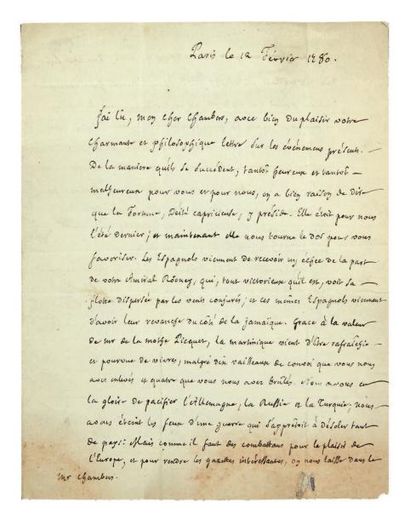 Paris le 12 Février 1780.
J'ai lu, mon cher Chambers, avec bien du plaisir votre
charmante et philosophique lettre sur les événemens présents.
De la maniere qu'ils se succédent, tantôt heureux et tantôt
malheureux pour vous et pour nous, on a bien raison de dire
que la Fortune, Deité capricieuse, y préside. Elle étoit pour nous
l'été dernier; et maintenant elle nous tourne le dos pour vous
favoriser. Les Espagnols viennent de recevoir un échec de la part
de votre Amiral Rodney, qui, tout victorieux qu'il est, voit sa
flotte dispersée par les vents conjurés; et ces mêmes Espagnols viennent
d'avoir leur revanche du côté de la jamaïque. Grace à la valeur
de mr de la mothe Picquet, la martinique vient d'être rafraichie
et pourvue de vivres, malgré dix vaisseaux de convoi que vous nous
avez enlevés et quatre que vous nous avez brûlés. nous avons eu
la gloire de pacifier l'Allemagne, la Russie et la Turquie; nous
avons éteint les feux d'une guerre qui s'apprêtoit à désoler tant
de pays: Mais comme il faut des combattans pour le plaisir de
l'Europe, et pour rendre les gazettes intéressantes, on nous laisse dans le
Mr Chambers.